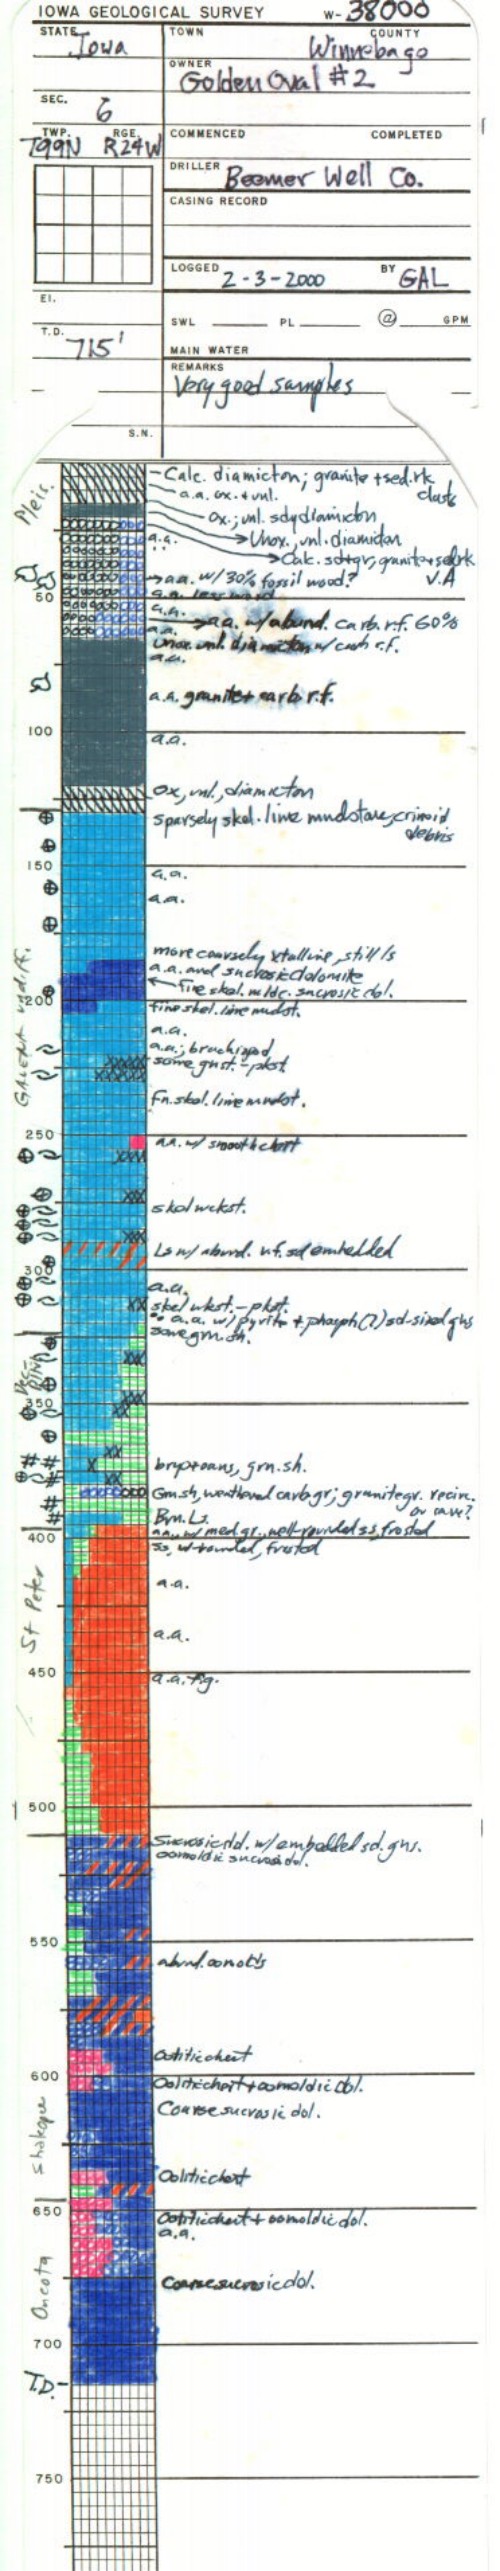 IOWA GEOLOGICAL SURVEY W- 38000
STATE Iowa
TOWN
COUNTY Winnebago
OWNER Golden Oval #2
SEC. 6
TWP. T99N RGE. R24W
COMMENCED
COMPLETED
DRILLER Beemer Well Co.
CASING RECORD
LOGGED 2-3-2000 BY GAL
El.
T.D. 715'
SWL PL @ GPM
MAIN WATER
REMARKS
Very good samples
S.N.
Pleis.
Calc. diamicton; granite + sed.rk clasts
a.a. ox. + unl.
Ox.; unl. sdy diamicton
Unox., unl. diamicton
Calc. sd+gr; granite+sedrk
a.a.
V.A
a.a. w/ 30% fossil wood?
50
a.a. less wood
a.a.
a.a. w/abund. carb r.f. 60%
a.a.
Unox. unl. diamicton w/ carb r.f.
a.a.
a.a. granite+carb r.f.
100
a.a.
Ox, unl., diamicton
sparsely skel. lime mudstone, crinoid debris
150
a.a.
a.a.
GALENA undiff.
more coarsely xtalline, still ls
a.a. and sucrosic dolomite
fine skel. mldc. sucrosic dol.
200
fine skel. lime mudst.
a.a.
a.a.; brachiopod
some grnst.-pkst.
Fn. skel. lime mudst.
250
a.a. w/ smooth chert
skel wckst.
Ls w/ abund. v.f. sd embedded
300
a.a.
skel wkst. - pkst.
a.a. w/ pyrite + phosph(?) sd-sized gns
some grn. sh.
Dec-
350
bryozoans, grn. sh.
Grn. sh, weathered carb gr; granite gr. recirc. or cave?
Brn. Ls.
a.a. w/ med. gr., well-rounded ss, frosted
400
ss, w-rounded, frosted
St Peter
a.a.
a.a.
450
a.a. f.g.
500
Sucrosic dol. w/ embedded sd. gns.
oomoldic sucrosic dol.
550
abund. oomolds
Oolitic chert
600
Oolitic chert + oomoldic dol.
Coarse sucrosic dol.
Shakopee
Oolitic chert
650
Oolitic chert + oomoldic dol.
a.a.
Oneota
Coarse sucrosic dol.
700
T.D.
750